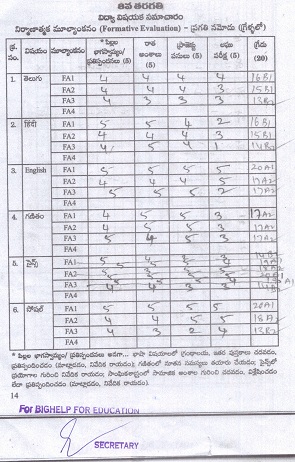 6వ తరగతి
విద్యా విషయక సమాచారం
నిర్మాణాత్మక మూల్యాంకనం (Formative Evaluation) - ప్రగతి నమోదు (గ్రేళ్ళలో)
క్ర. సం. విషయం మూల్యాంకనం * పిల్లల భాగస్వామ్యం/ ప్రతిస్పందనలు (5) రాత అంశాలు (5) ప్రాజెక్టు పనులు (5) లఘు పరీక్ష (5) గ్రేడు (20)
1. తెలుగు FA1 4 4 4 4 16 B1
FA2 4 4 4 3 15 B1
FA3 4 3 3 3 13 B2
FA4
2. హిందీ FA1 5 5 4 2 16 B1
FA2 4 4 4 3 15 B1
FA3 4 5 4 1 14 B2
FA4
3. English FA1 5 5 5 5 20 A1
FA2 4 4 4 5 17 A2
FA3 5 5 5 2 17 A2
FA4
4. గణితం FA1 4 5 5 3 17 A2
FA2 4 5 5 3 17 A2
FA3 5 4 5 3 17 A2
FA4
5. సైన్స్ FA1
FA2
FA3
FA4
6. సోషల్ FA1 5 5 5 5 20 A1
FA2 4 4 5 5 18 A2
FA3 4 3 2 4 13 B2
FA4
* పిల్లల భాగస్వామ్యం/ ప్రతిస్పందనలు అనగా... భాషా విషయాలలో గ్రంథాలయ, ఇతర పుస్తకాలు చదవడం,
ప్రతిస్పందించడం (మాట్లాడడం, నివేదిక రాయడం); గణితంలో నూతన సమస్యలు తయారు చేయడం; సైన్స్‌లో
ప్రయోగాల గురించి నివేదిక రాయడం; సాంఘికశాస్త్రంలో సామాజిక అంశాల గురించి చదవడం, విశ్లేషించడం
లేదా ప్రతిస్పందించడం (మాట్లాడడం, నివేదిక రాయడం).
14
For BIGHELP FOR EDUCATION
SECRETARY